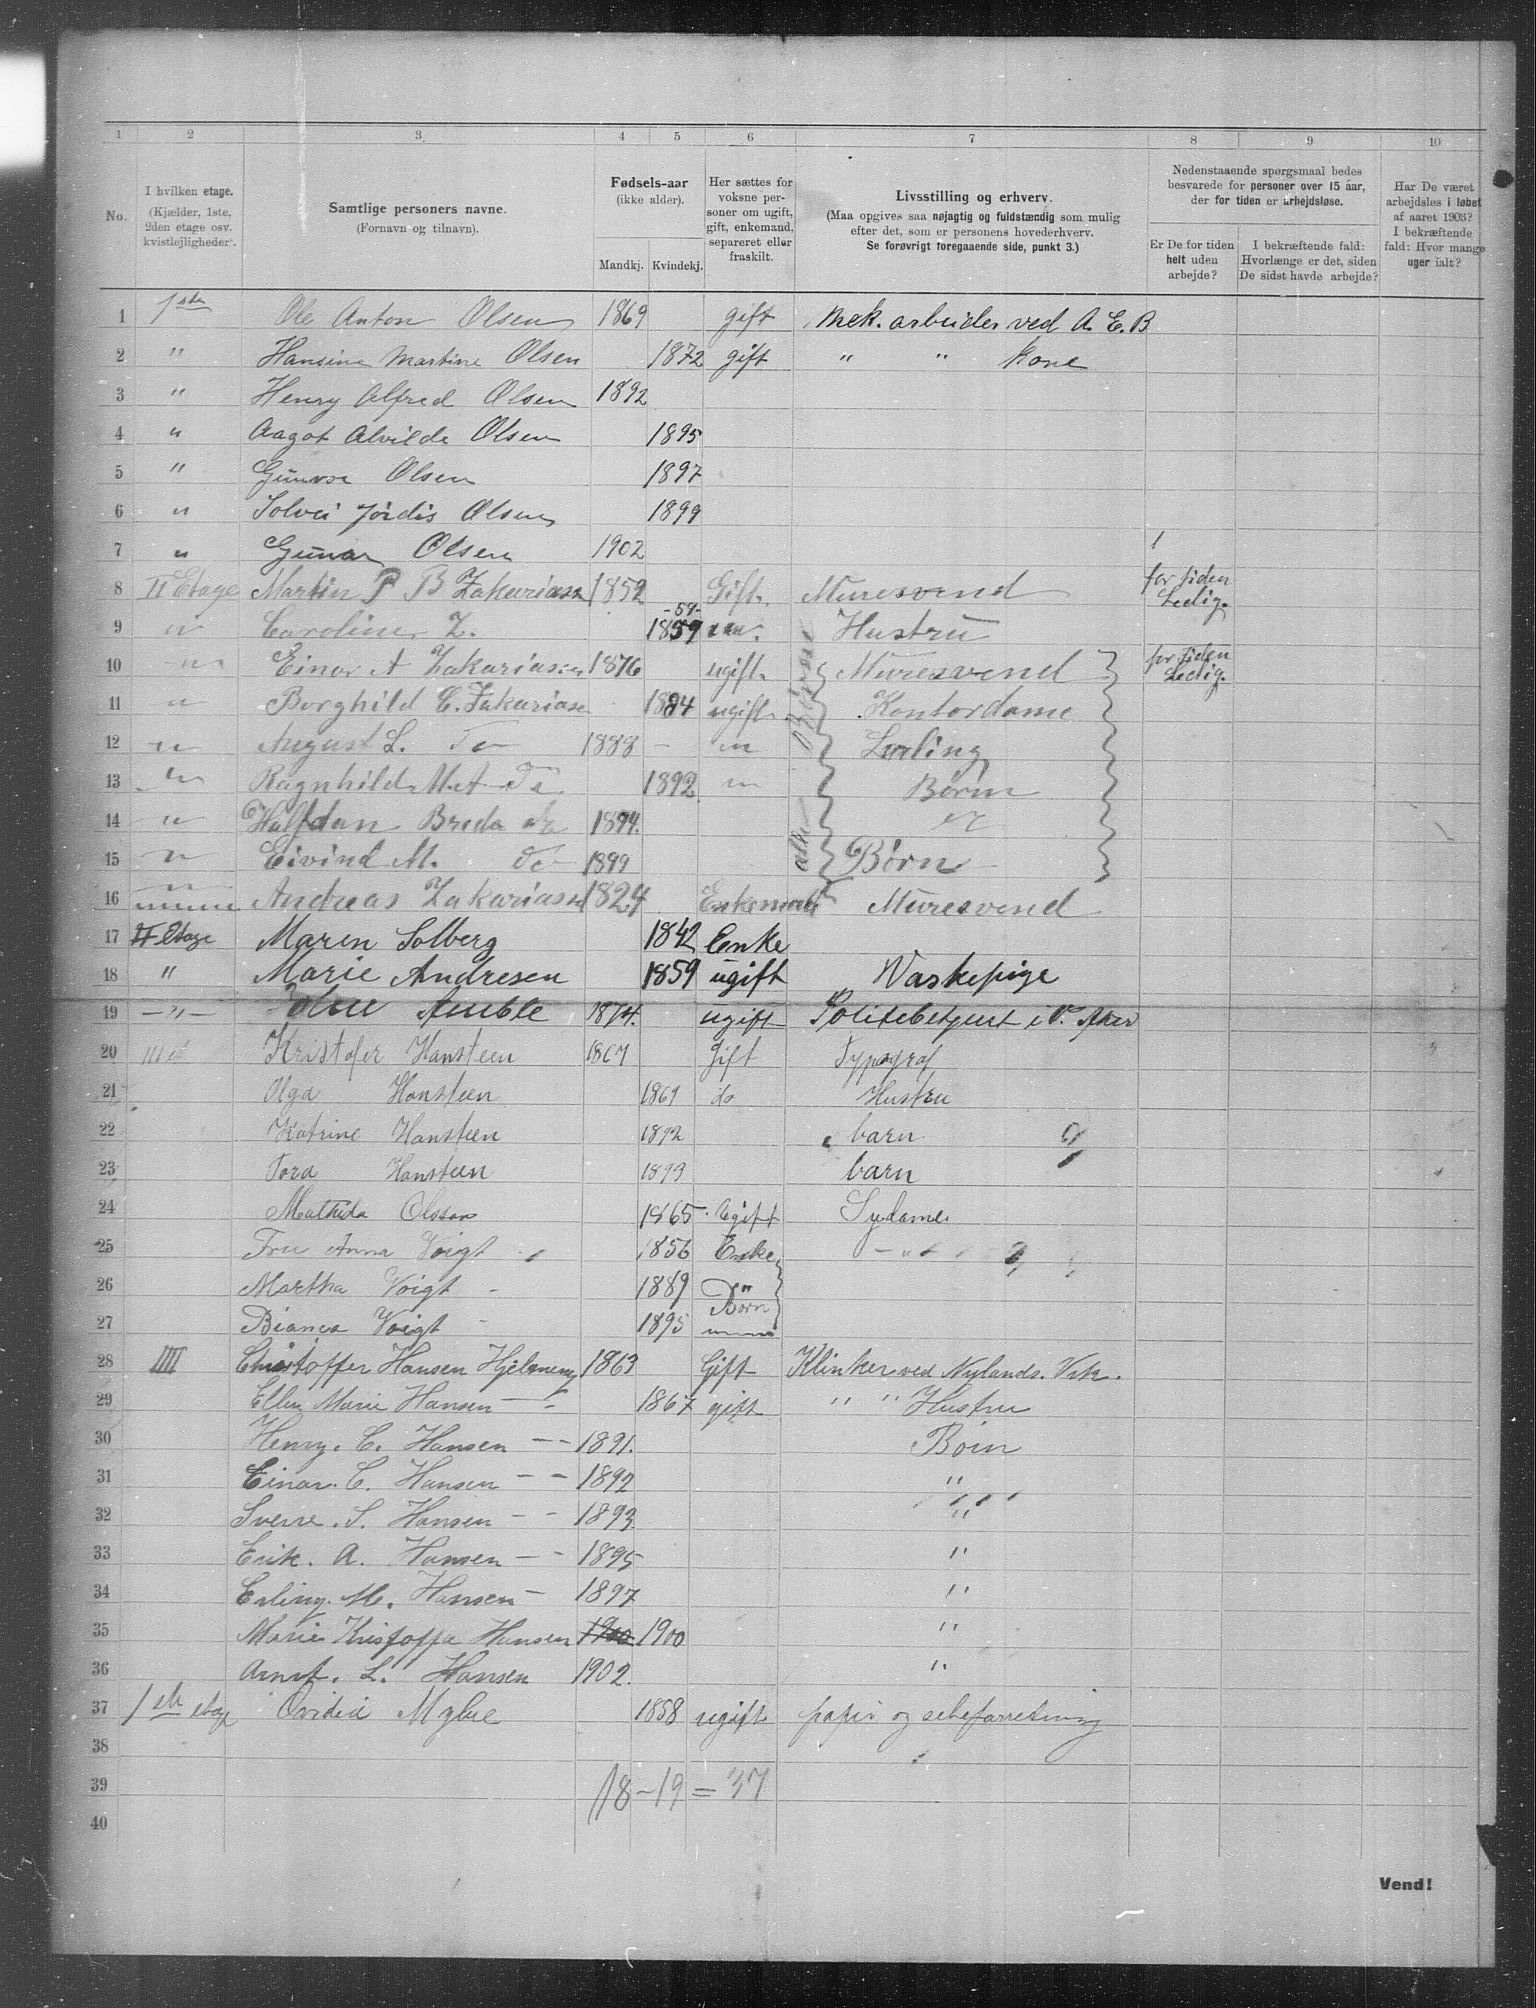 1 2 3 4 5 6 7 8 9 10
No.
I hvilken etage.
(Kjælder, 1ste,
2den etage osv.
kvistlejligheder).
Samtlige personers navne.
(Fornavn og tilnavn).
Fødsels-aar
(ikke alder).
Mandkj. Kvindekj.
Her sættes for
voksne per-
soner om ugift,
gift, enkemand,
separeret eller
fraskilt.
Livsstilling og erhverv.
(Maa opgives saa nøjagtig og fuldstændig som mulig
efter det, som er personens hovederhverv.
Se forøvrigt foregaaende side, punkt 3.)
Nedenstaaende spørgsmaal bedes
besvarede for personer over 15 aar,
der for tiden er arbejdsløse.
Er De for tiden
helt uden
arbejde?
I bekræftende fald:
Hvorlænge er det, siden
De sidst havde arbejde?
Har De været
arbejdsløs i løbet
af aaret 1903?
I bekræftende
fald: Hvor mange
uger ialt?
1 1ste Ole Anton Olsen 1869 gift Mek. arbeider ved A. E. B
2 " Hansine Martine Olsen 1872 gift " " Kone
3 " Henry Alfred Olsen 1892
4 " Aagot Alvilde Olsen 1895
5 " Gunvor Olsen 1897
6 " Solvei Jordis Olsen 1899
7 " Gunar Olsen 1902
8 II Etage Martin P B Zakariasen 1852 Gift. Muresvend for tiden Ledig.
9 " Caroline Z. 1859 -59- Hustru
10 " Einar A Zakariasen 1876 ugift. Muresvend for tiden Ledig.
11 " Borghild C. Zakariasen 1884 ugift. Kontordame
12 " August L. Do 1888 - " Lærling
13 " Ragnhild M.A Do 1892 " Børn
14 " Halfdan Breda do 1894. "
15 " Eivind M. Do 1899 alle Børn
16 " Andreas Zakariassen 1824 Enkemand Muresvend
17 II Etage Maren Solberg 1842 Enke
18 " Marie Andresen 1859 ugift Vaskepige
19 -"- 1874. ugift Politebetjent i V. Aker
20 III et Kristofer Hansteen 1867 Gift Typograf
21 Olga Hansteen 1869 do Hustru
22 Katrine Hansteen 1892 barn
23 Tora Hansteen 1899 barn
24 Mathida Olsson 1865 Ugift Sydame
25 Fru Anna Voigt 1856 Enke
26 Martha Voigt 1889 Børn
27 Bianca Voigt 1895
28 IIII Christoffer Hansen Hjelmeng 1863 Gift Klinker ved Nylands. Verk.
29 Ellen Marie Hansen - - 1867 gift " " Hustru
30 Henry. C. Hansen - - 1891. Børn
31 Einar. C. Hansen - - 1892 "
32 Sverre. S. Hansen - - 1893 "
33 Erik. A. Hansen - - 1895 "
34 Erling. M. Hansen - 1897 "
35 Marie Kristoffa Hansen 1900 1900 "
36 Arnt. L. Hansen 1902. "
37 1ste etage Ovidia Myhre 1858 ugift papir og sebeforretning
38
39 18 - 19 = 37
40
Vend!